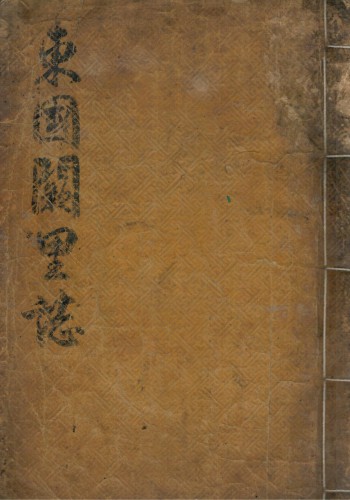 東國闕里誌